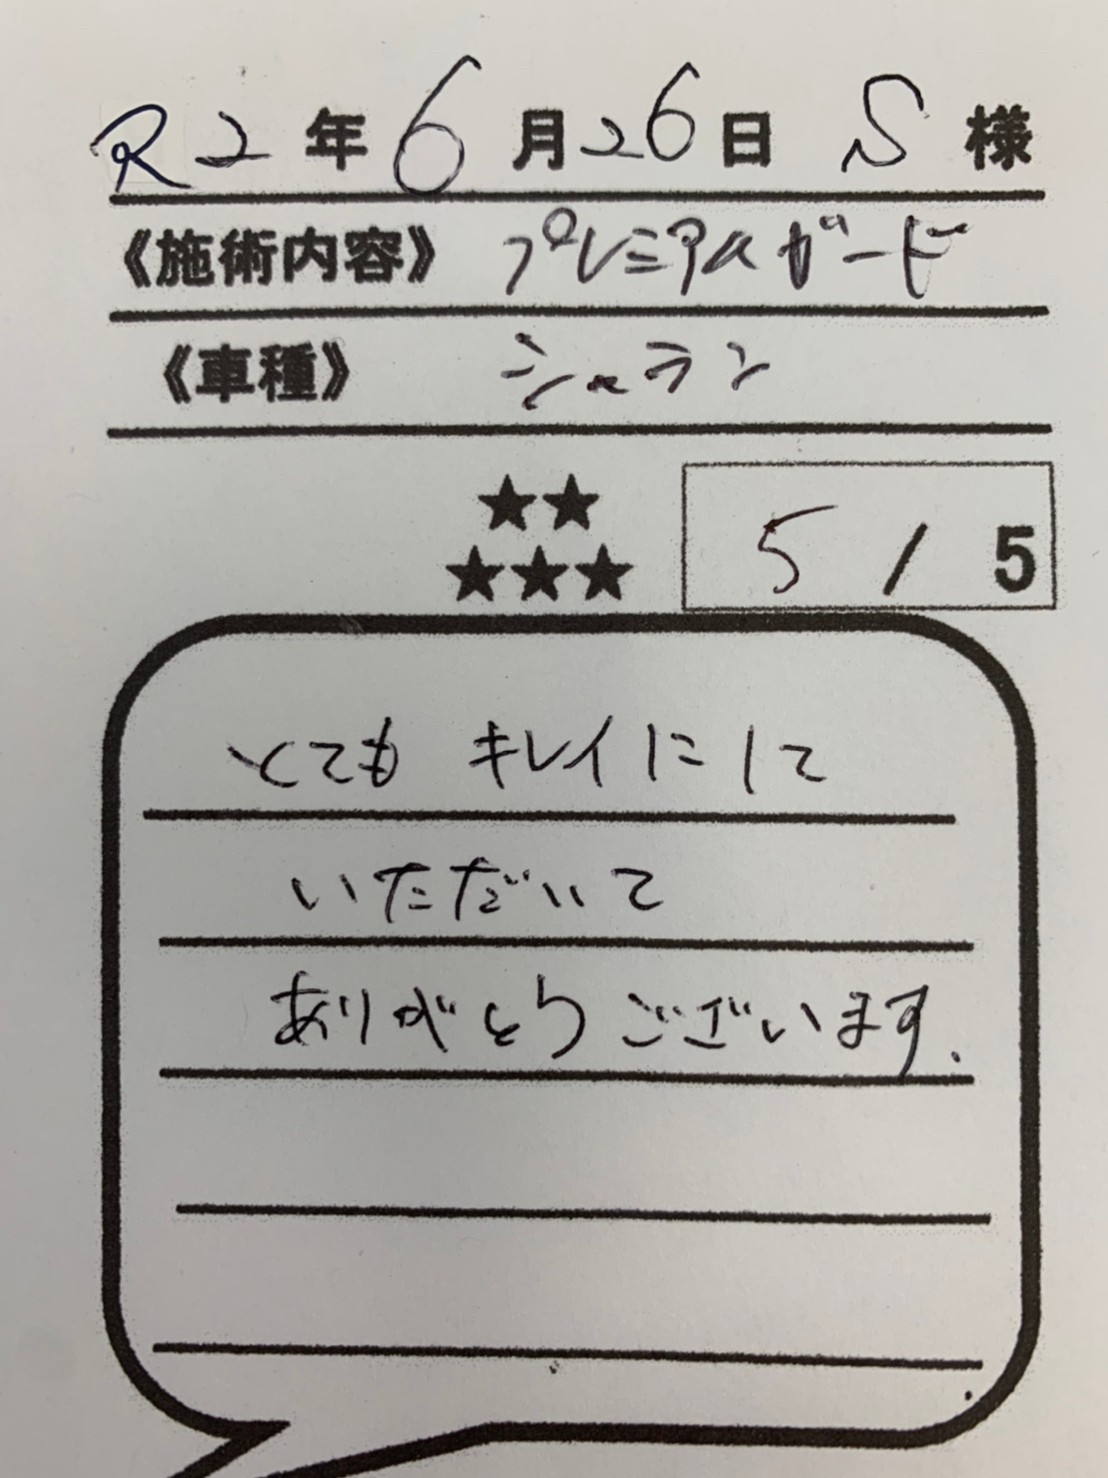 R2年6月26日 S様
《施術内容》 プレミアムガード
《車種》 シャラン
★★
★★★ 5/5
とてもキレイにして
いただいて
ありがとうございます.